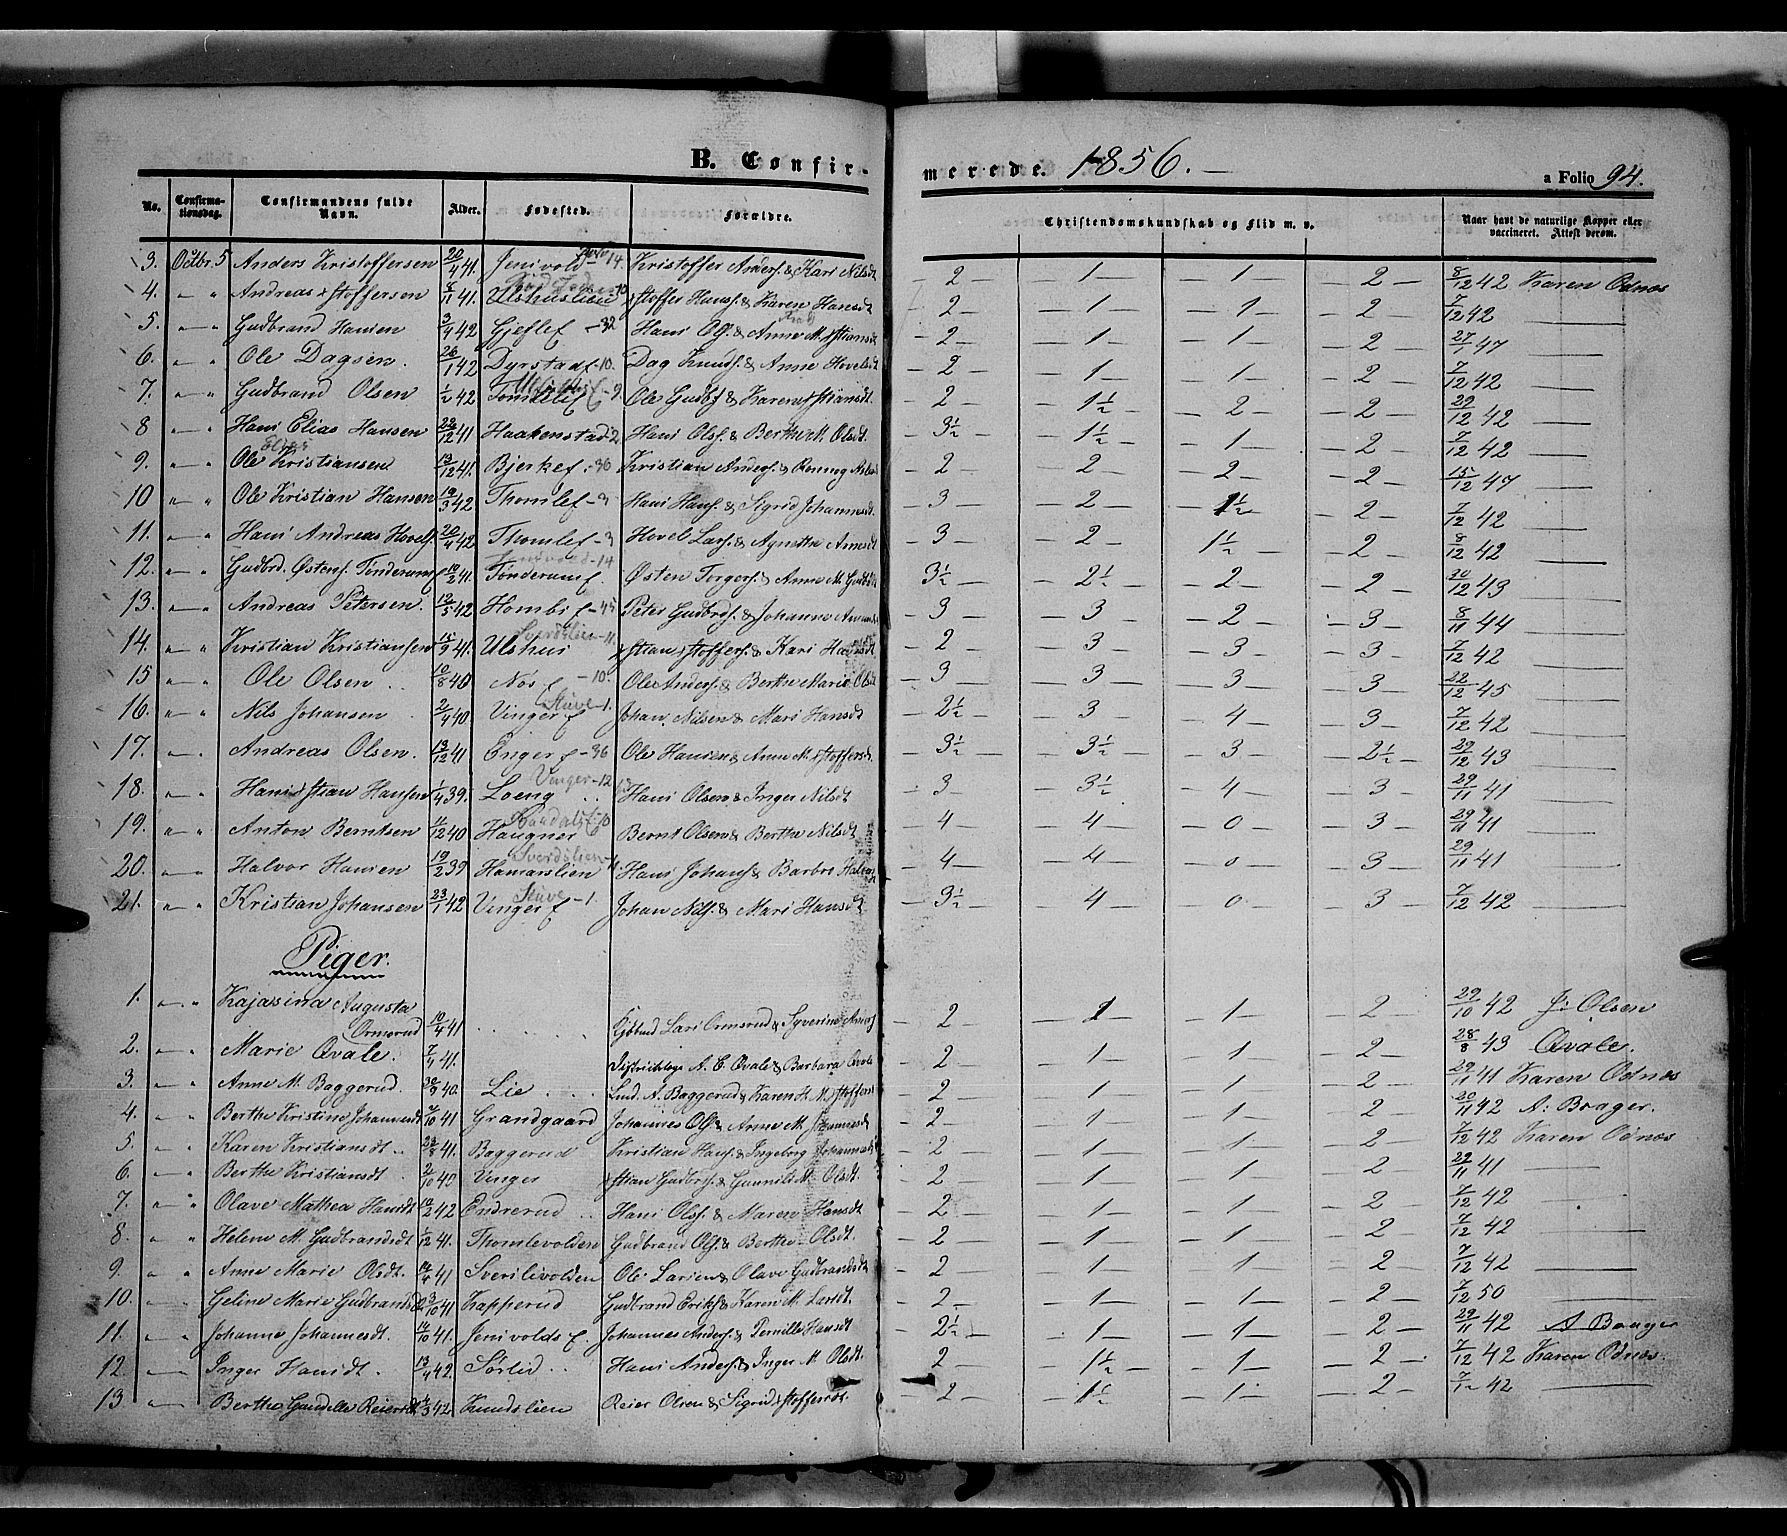 B. Confirmerede. 1856. a Folio 94.
No. Confirmationsdag. Confirmandens fulde Navn. Alder. Fødested. Forældre. Christendomskundskab og Flid m. v. Naar havt de naturlige Kopper eller vaccineret. Attest derom.
3. Octbr. 5 Anders Kristoffersen 20/4 41. Jenivold 14 Kristoffer Anders. & Kari Nilsdt 2 1 1 2 8/12 42 Karen Odnæs
4. " " Andreas Xstoffersen 8/11 41. Ulshuslien 10 Xstoffer Hans. & Karen Hansdt 2 1 1 2 7/12 42
5. " " Gudbrand Hansen 3/4 42 Gjeflef - 32 Hans Ols. & Anne M. Xstiansdt 2 1 1 2 27/7 47
6. " " Ole Dagsen. 26/1 42 Dyrstadf - 10. Dag Knuds. & Anne Hovelsdt 2 1 1 2 7/12 42
7. " " Gudbrand Olsen 1/2 42 Tomlef - 9. Ole Gudbs & Karen Xstiansdt. 2 1½ 2 2 29/12 42
8 " " Hans Elias Hansen 22/12 41 Haakenstad - 2 Hans Ols. & Berthe M. Olsdt. 3½ 1½ 1 2 7/12 42
9. " " Ole Elias Kristiansen 13/12 41. Bjerkef. - 36 Kristian Anders. & Ronnog 2 2 2 2 15/12 47
10 " " Ole Kristian Hansen 19/3 42 Thomlef - 9 Hans Hans. & Sigrid Johannesdt. 3 2 1½ 2 7/12 42
11. " " Hans Andreas Hovels. 20/4 42 Thomlef - 9 Hovel Lars. & Agnethe Arnesdt 3 2 1½ 2 8/12 42
12. " " Gudbrd. Østens. Tønderum 10/2 41. Jenivold - 14 Tønderumf. Østen Torgers. & Anne M. Gudbsdt 3½ 2½ 2 2 30/12 43
13. " " Andreas Petersen. 12/5 42 Hombf - 45 Peter Gudbrds. & Johanne 3 3 2 3 8/11 44
14. " " Kristian Kristiansen 15/9 41. Sverdslien - 11. Ulshus Xstian Xstoffers. & Kari Hansdt 2 3 3 3 7/12 42
15 " " Ole Olsen 10/8 40 Nøs f - 10. Ole Anders. & Berthe Marie Olsdt 3 3 3 3 22/12 45
16. " " Nils Johansen 2/4 40 Stuve - 1. Vinger f Johan Nilsen & Mari Hansdt 2½ 3 4 3 7/12 42
17. " " Andreas Olsen. 13/12 41 Enger f - 36 Ole Hansen & Anne M. Xstoffersdt. 3½ 3½ 3 2½ 29/12 43
18. " " Hans Xstian Hansen 1/4 39. Vinger - 12 Loeng Hans Olsen & Inger Nilsdt 3 3½ 4 3 29/11 41
19. " " Anton Berntsen 1/12 40 Haugner Bernt Olsen & Berthe Nilsdt 4 4 0 3 29/11 41
20. " " Halvor Hansen 19/2 39 Sverdslien Hamarslien Hans Johans. & Barbro 4 4 0 3 29/11 41
21. " " Kristian Johansen 23/1 42 Stuve - 1. Vinger f Johan Nils. & Mari Hansdt 3½ 4 0 3 7/12 42
Piger.
1. " " Kajasina Augusta
Ormsrud 10/4 41 Lars Ormsrud & Syverine 2 1 1 2 29/10 42 J: Olsen
2. " " Marie Qvale. 7/4 41. Districtslæge A. C. Qvale & Barbara Qvale 2 1 1 2 28/8 43 Qvale.
3. " " Anne M. Baggerud. 30/9 40. Lie Lind. A. Baggerud & Karen H. M. Xstoffersdt 2 1 1 2 29/11 41 Karen Odnæs
4. " " Berthe Kristine Johannesdt 7/10 41 Grandgaard Johannes Ols. & Anne M. Johannesdt 2 1 1 2 20/11 42 A: Brager.
5. " " Karen Kristiansdt 22/8 41. Baggerud Kristian Hans. & Ingeborg Johannesdt 2 1 1 2 7/12 42 Karen Odnæs
6. " " Berthe Kristiansdt 2/10 40 Vinger Xstian Gudbrs. & Gunnild M. Olsdt. 2 1 1 2 29/11 41
7. " " Olave Mathea Hansdt 10/2 42 Endrerud Hans Ols. & Maren Hansdt 2 1 1 2 7/12 42
8. " " Helene M. Gudbrandsdt 1/12 41. Thomlevolden Gudbrand Ols. & Berthe Olsdt. 2 1 1 2 7/12 42
9. " " Anne Marie Olsdt. 14/4 41 Sverilivolden Ole Larsen & Olave Gudbrandsdt 2 1 1 2 7/12 42
10. " " Geline Marie Gudbrandsd 3/10 41 Kapperud Gudbrand Eriks. & Karen M. Larsdt. 2 1 1 2 7/12 50
11. " " Johanne Johannesdt. 14/10 41. Jenivolds f. Johannes Anders. & Pernille Hansdt 2½ 1 1 2 29/11 42 A Brager
12. " Inger Hansdt. 13/4 42 Sørlid Hans Anders. & Inger M. Olsdt. 2 1½ 1 2 7/12 42 Karen Odnæs.
13 " Berthe Gundelle Reiersdt 1/3 42 Knudslien Reier Olsen & Sigrid Xstoffersdt. 2 1½ 1 2 7/12 42